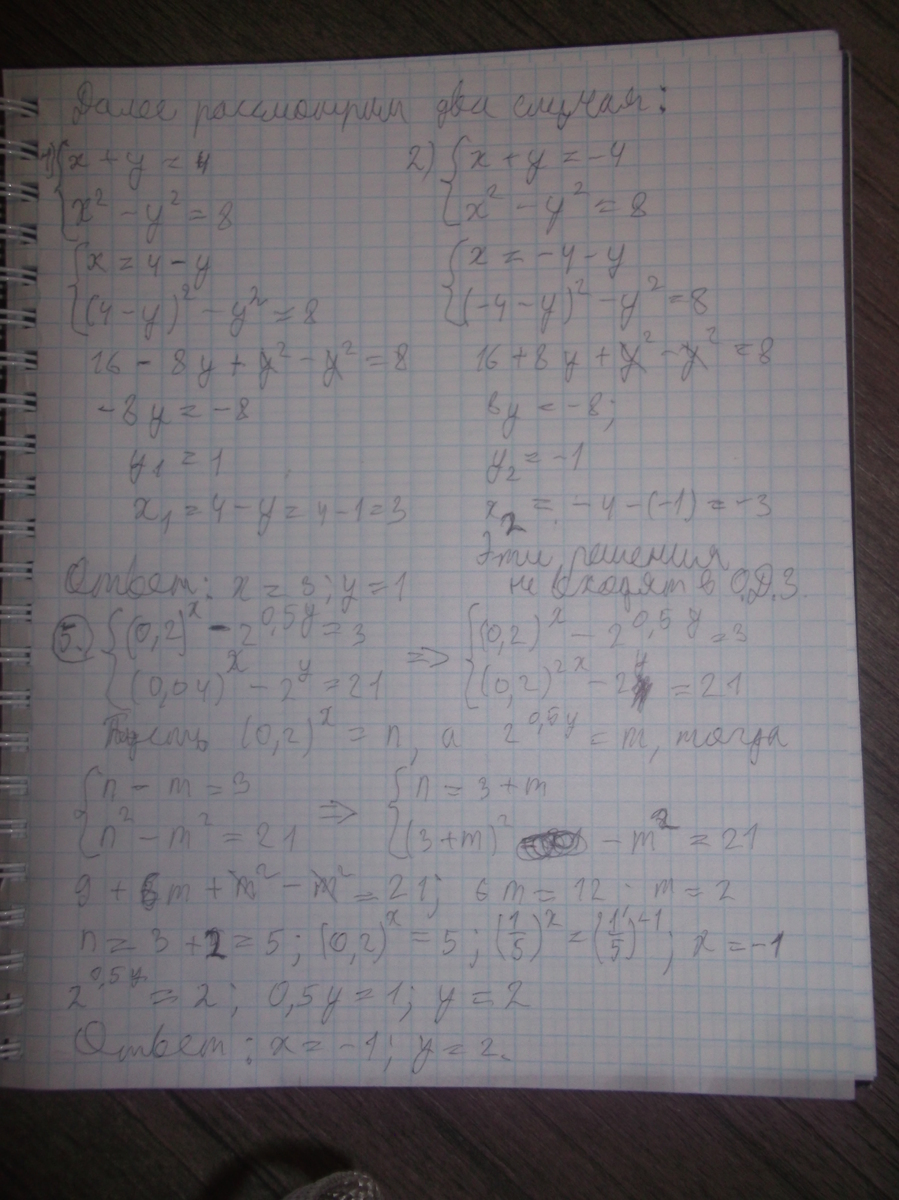 Далее рассмотрим два случая:
1) { x + y = 4
x² - y² = 8
{ x = 4 - y
(4 - y)² - y² = 8
16 - 8y + y² - y² = 8
-8y = -8
y₁ = 1
x₁ = 4 - y = 4 - 1 = 3
2) { x + y = -4
x² - y² = 8
{ x = -4 - y
(-4 - y)² - y² = 8
16 + 8y + y² - y² = 8
8y = -8;
y₂ = -1
x₂ = -4 - (-1) = -3
Эти решения
не входят в О.Д.З.
Ответ: x = 3; y = 1
5. { (0,2)ˣ - 2^0,5y = 3 => { (0,2)ˣ - 2^0,5y = 3
(0,04)ˣ - 2^y = 21 (0,2)^2x - 2^y = 21
Пусть (0,2)ˣ = n, а 2^0,5y = m, тогда
{ n - m = 3 => { n = 3 + m
n² - m² = 21 (3 + m)² - m² = 21
9 + 6m + m² - m² = 21; 6m = 12 m = 2
n = 3 + 2 = 5; (0,2)ˣ = 5; (1/5)ˣ = (1/5)⁻¹; x = -1
2^0,5y = 2; 0,5y = 1; y = 2
Ответ: x = -1; y = 2.